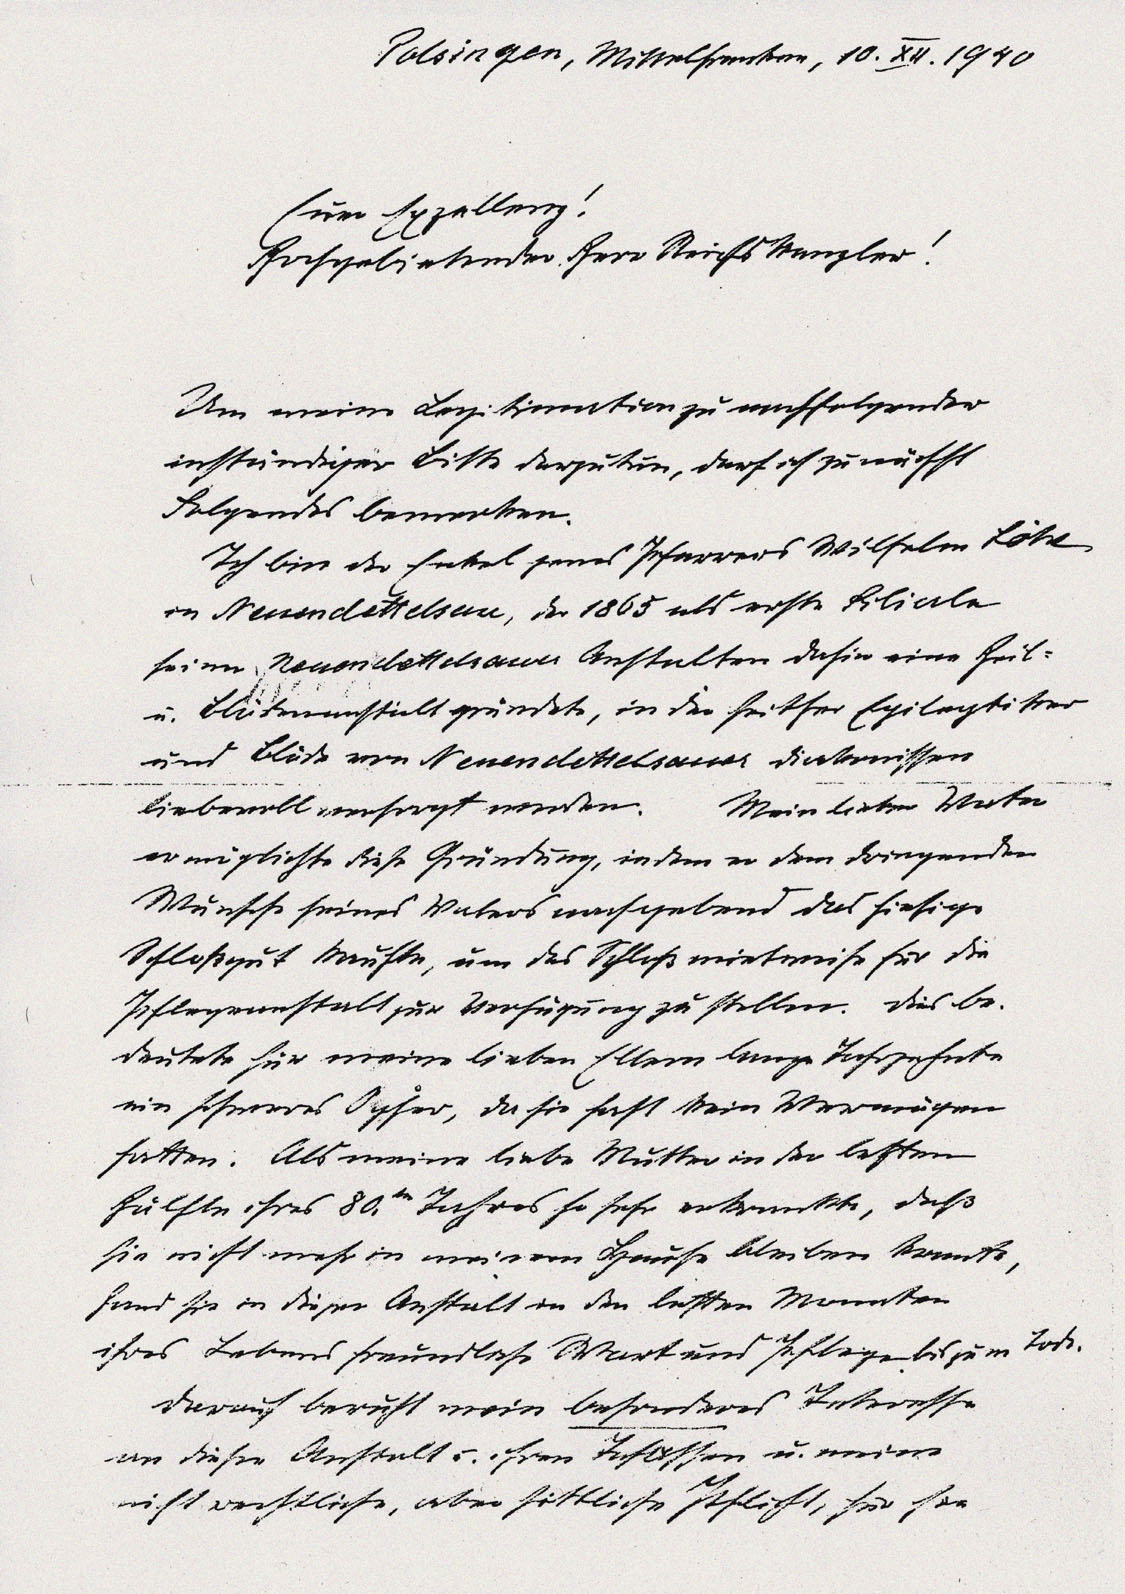 Polsingen, Mittelfranken, 10. XII. 1940
Euer Exzellenz!
Hochgebietender Herr Reichskanzler!
Um meine Legitimation zu nachfolgender
inständiger Bitte darzutun, darf ich zunächst
Folgendes bemerken.
Ich bin der Enkel jenes Pfarrers Wilhelm Löhe
in Neuendettelsau, der 1865 als erste Filiale
seiner Neuendettelsauer Anstalten dahier eine Heil-
u. Blödenanstalt gründete, in der seither Epileptiker
und Blöde von Neuendettelsauer Diakonissen
liebevoll versorgt werden. Mein lieber Vater
ermöglichte diese Gründung, indem er dem dringenden
Wunsche seines Vaters nachgebend das hiesige
Schloßgut kaufte, um das Schloß mietweise für die
Pflegeanstalt zur Verfügung zu stellen. Dies be-
deutete für meine lieben Eltern lange Jahrzehnte
ein schweres Opfer, da sie fast kein Vermögen
hatten. Als meine liebe Mutter in der letzten
Hälfte ihres 80.ten Jahres so sehr erkrankte, daß
sie nicht mehr in meinem Hause bleiben konnte,
fand sie in dieser Anstalt in den letzten Monaten
ihres Lebens freundliche Wart und Pflege bis zum Tode.
Darauf beruht mein besonderes Interesse
an dieser Anstalt u. ihren Insassen u. meine
nicht rechtliche, aber sittliche Pflicht, für sie